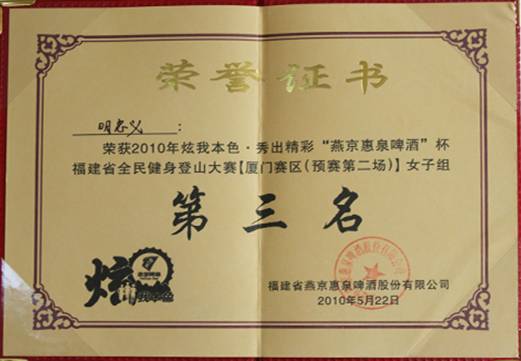 荣誉证书
明忠义：
荣获2010年炫我本色·秀出精彩“燕京惠泉啤酒”杯
福建省全民健身登山大赛【厦门赛区（预赛第二场）】女子组
第三名
炫
福建省燕京惠泉啤酒股份有限公司
2010年5月22日